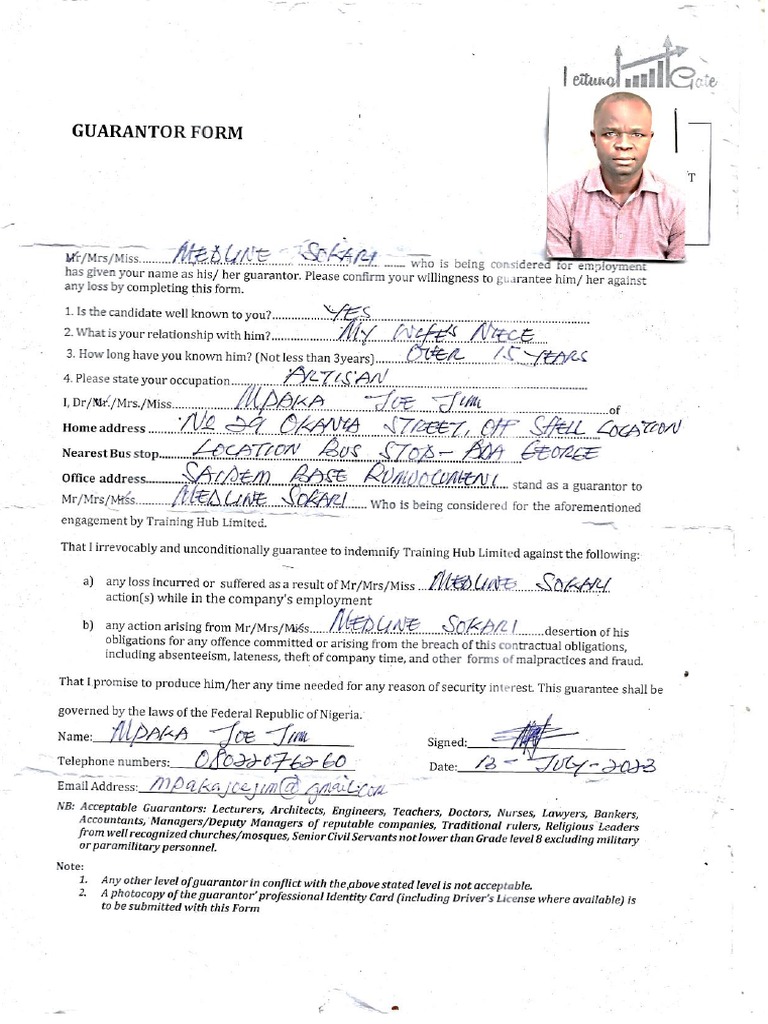 Leitunol Gate
GUARANTOR FORM
T
Mr/Mrs/Miss......MEDLINE SOKARI...... who is being considered for employment
has given your name as his/ her guarantor. Please confirm your willingness to guarantee him/ her against
any loss by completing this form.
1. Is the candidate well known to you?..........YES..........
2. What is your relationship with him?..........MY WIFE'S NIECE..........
3. How long have you known him? (Not less than 3years)......OVER 15 YEARS
4. Please state your occupation..........ARTISAN..........
I, Dr/Mr./Mrs./Miss..........MPAKA JOE JIM..........of
Home address ....No 29 OKANTA STREET, OFF SHELL LOCATION
Nearest Bus stop....LOCATION BUS STOP- ADA GEORGE
Office address......SAIDEM BASE RUMUOLUMENI.... stand as a guarantor to
Mr/Mrs/Miss......MEDLINE SOKARI..... Who is being considered for the aforementioned
engagement by Training Hub Limited.
That I irrevocably and unconditionally guarantee to indemnify Training Hub Limited against the following:
a) any loss incurred or suffered as a result of Mr/Mrs/Miss ...MEDLINE SOKARI
action(s) while in the company's employment
b) any action arising from Mr/Mrs/Miss....MEDLINE SOKARI......desertion of his
obligations for any offence committed or arising from the breach of this contractual obligations,
including absenteeism, lateness, theft of company time, and other forms of malpractices and fraud.
That I promise to produce him/her any time needed for any reason of security interest. This guarantee shall be
governed by the laws of the Federal Republic of Nigeria.
Name: MPAKA JOE JIM Signed:
Telephone numbers: 08022076260 Date: 13-JULY-2023
Email Address: mpakajoejim@gmail.com
NB: Acceptable Guarantors: Lecturers, Architects, Engineers, Teachers, Doctors, Nurses, Lawyers, Bankers,
Accountants, Managers/Deputy Managers of reputable companies, Traditional rulers, Religious Leaders
from well recognized churches/mosques, Senior Civil Servants not lower than Grade level 8 excluding military
or paramilitary personnel.
Note:
1. Any other level of guarantor in conflict with the above stated level is not acceptable.
2. A photocopy of the guarantor' professional Identity Card (including Driver's License where available) is
to be submitted with this Form